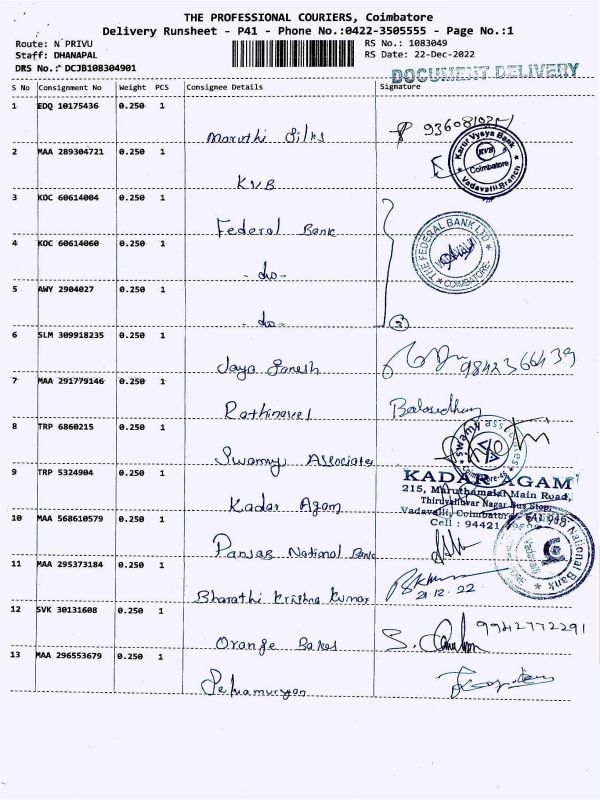 THE PROFESSIONAL COURIERS, Coimbatore
Delivery Runsheet - P41 - Phone No.:0422-3505555 - Page No.:1
Route: N PRIVU
RS No.: 1083049
Staff: DHANAPAL
RS Date: 22-Dec-2022
DRS No.: DCJB108304901
DOCUMENT DELIVERY
S No Consignment No Weight PCS Consignee Details Signature
1 EDQ 10175436 0.250 1 Maruthi Silks
2 MAA 289304721 0.250 1 KVB
Karur Vysya Bank
KVB
Coimbatore
Vadavalli, Branch
3 KOC 60614004 0.250 1 Federal Bank
THE FEDERAL BANK LTD
COIMBATORE
4 KOC 60614060 0.250 1 - do -
5 AWY 2904027 0.250 1 - do -
3
6 SLM 309918235 0.250 1 Jaya Ganesh 9842366439
7 MAA 291779146 0.250 1 Rathinavel
8 TRP 6860215 0.250 1 Swamy Associates
swamy associates
9 TRP 5324904 0.250 1 Kadar Agam
KADAR AGAM
215, Maruthamalai Main Road,
Thiruvalluvar Nagar Bus Stop,
Vadavalli, Coimbatore - 641 046
Cell : 94421
10 MAA 568610579 0.250 1 Panjab National Bank
National Bank
11 MAA 295373184 0.250 1 Bharathi Krishna Kumar
21.12.22
12 SVK 30131608 0.250 1 Orange Bakes 9942772291
13 MAA 296553679 0.250 1